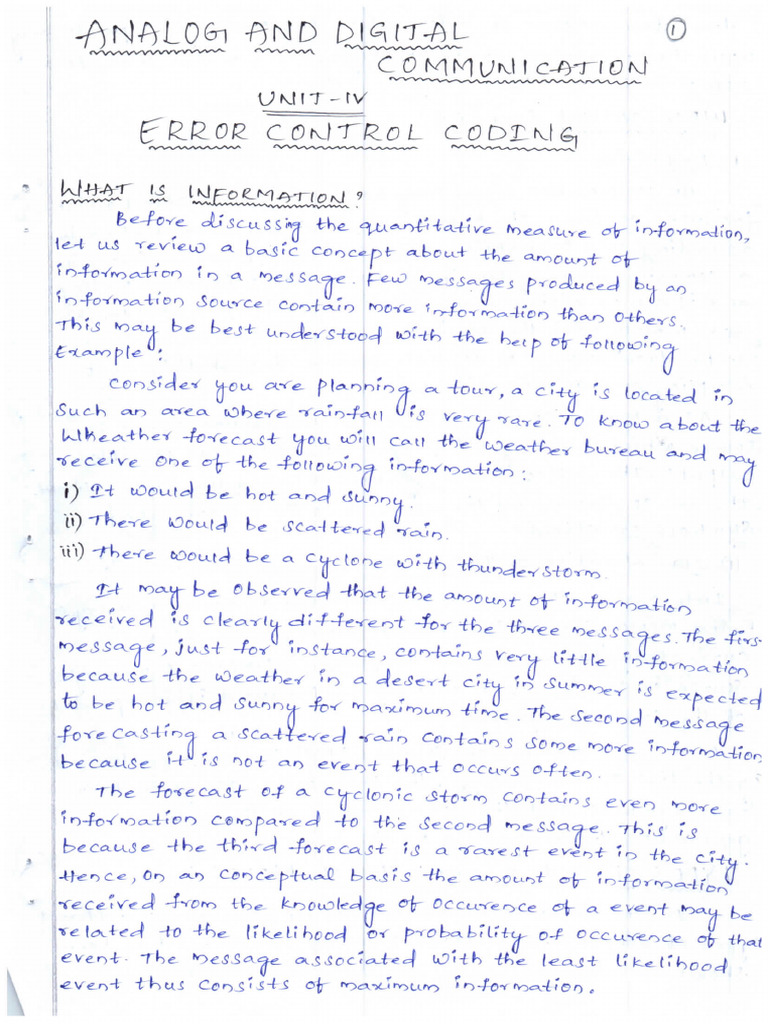 ANALOG AND DIGITAL
1
COMMUNICATION
UNIT-IV
ERROR CONTROL CODING
WHAT IS INFORMATION?
Before discussing the quantitative measure of information,
let us review a basic concept about the amount of
information in a message. Few messages produced by an
information source contain more information than others.
This may be best understood with the help of following
Example:
Consider you are planning a tour, a city is located in
such an area where rainfall is very rare. To know about the
forecast you will call the weather bureau and may
receive one of the following information:
i) It would be hot and sunny.
ii) There would be scattered rain.
iii) There would be a cyclone with thunderstorm.
It may be observed that the amount of information
received is clearly different for the three messages. The firs
message, just for instance, contains very little information
because the weather in a desert city in summer is expected
to be hot and sunny for maximum time. The second message
forecasting a scattered rain contains some more information
because it is not an event that occurs often.
The forecast of a cyclonic storm contains even more
information compared to the second message. This is
because the third forecast is a rarest event in the city.
Hence, on an conceptual basis the amount of information
received from the knowledge of occurence of a event may be
related to the likelihood or probability of occurence of that
event. The message associated with the least likelihood
event thus consists of maximum information.